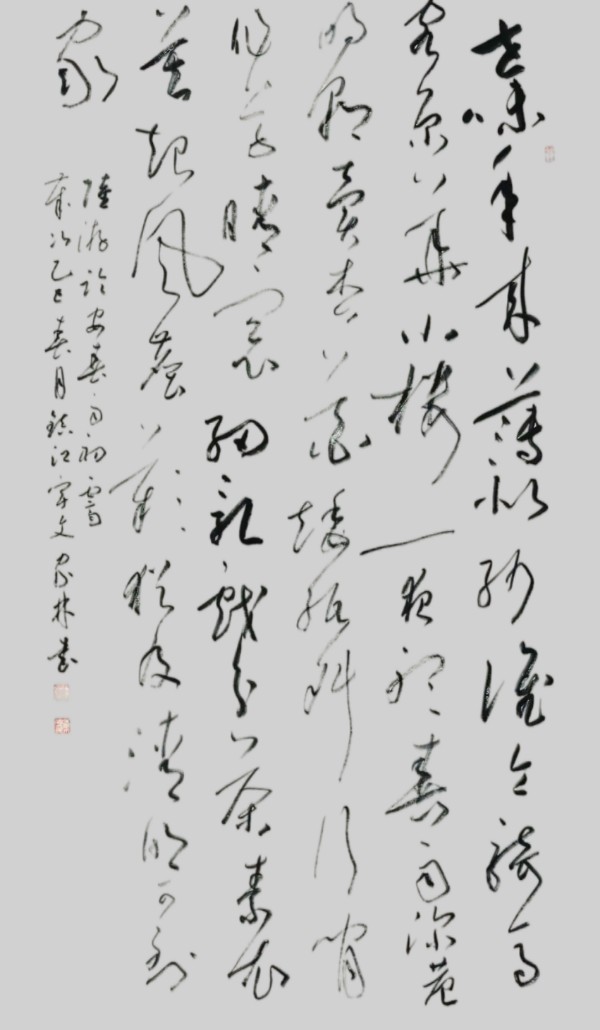 世味年来薄似纱谁令骑马
客京华小楼一夜听春雨深巷
明朝卖杏花矮纸斜行闲
作草晴窗细乳戏分茶素衣
莫起风尘叹犹及清明可到
家
陆游临安春雨初霁
岁次乙巳春月镇江宋文家林书